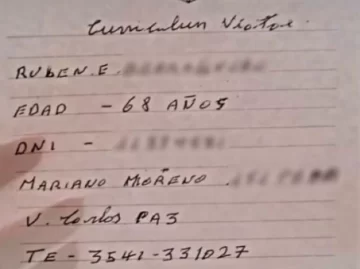 Curriculum Vitae
RUBEN.E.
EDAD - 68 AÑOS
DNI -
MARIANO MOREÑO
V. Carlos PAZ
TE - 3541-331027